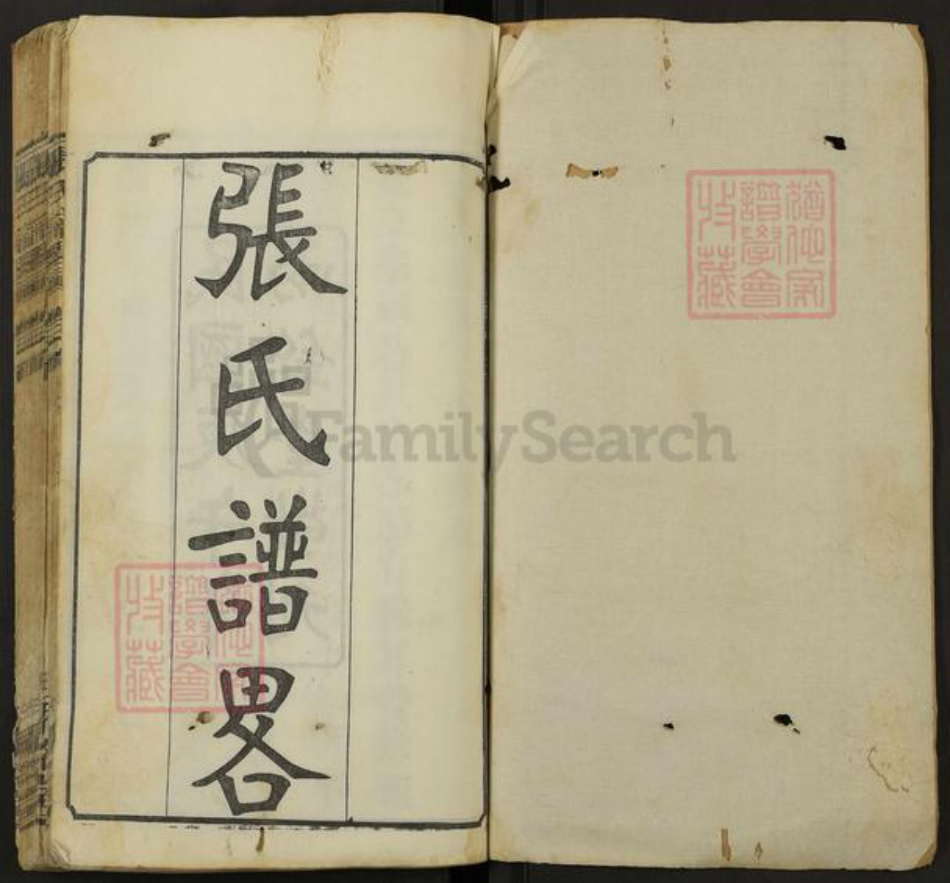 張氏譜畧
猶他家
譜學會
收藏
猶他家
譜學會
收藏
FamilySearch